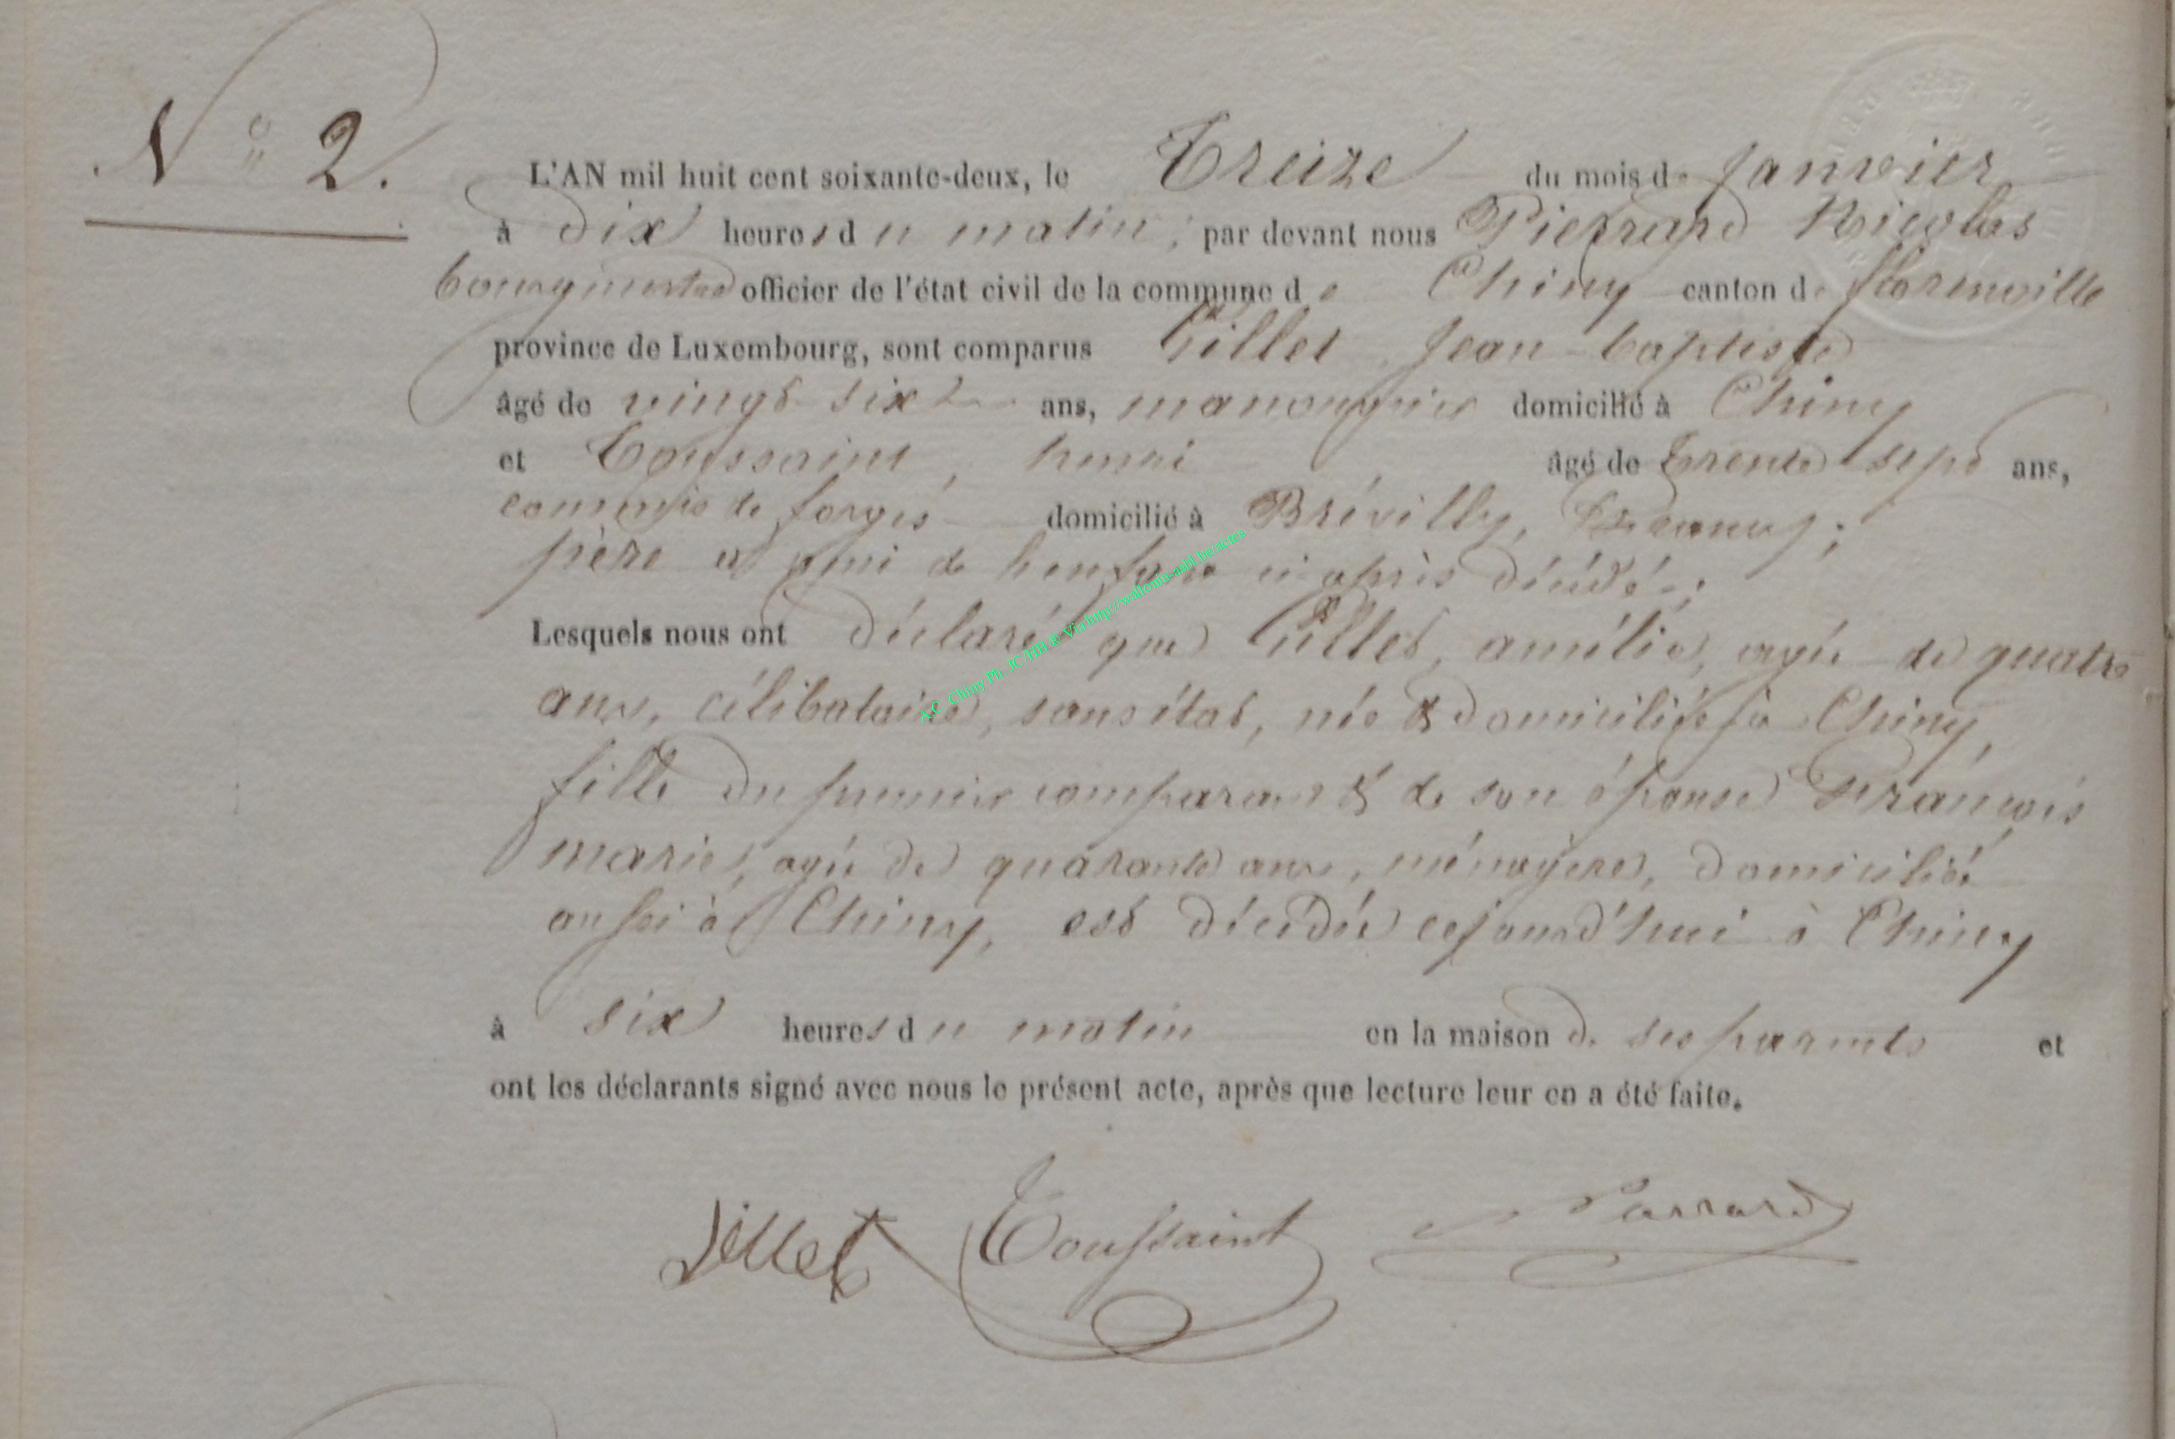 N° 2.
L'AN mil huit cent soixante-deux, le Treize du mois de Janvier
à dix heures du matin, par devant nous Pierrard Nicolas
bourgmestre officier de l'état civil de la commune de Chiny canton de florenville
province de Luxembourg, sont comparus Gillet Jean-baptiste
âgé de vingt-six ans, manouvrier domicilié à Chiny
et Toussaint, henri âgé de trente sept ans,
commis de forges domicilié à Brévilly,
père et ami de l'enfant ci-après décédé;
Lesquels nous ont déclaré que Gillet, amélie, agée de quatre
ans, célibataire, sans état, née & domiciliée à Chiny,
fille du premier comparant & de son épouse François
marie, agée de quarante ans, ménagère, domiciliée
aussi à Chiny, est décédée cejourd'hui à Chiny
à six heures du matin en la maison de ses parents et
ont les déclarants signé avec nous le présent acte, après que lecture leur en a été faite.
Gillet Toussaint Pierrard
A.C. Chiny Ph. JC HH © Via http://wallonia-asbl.be/actes